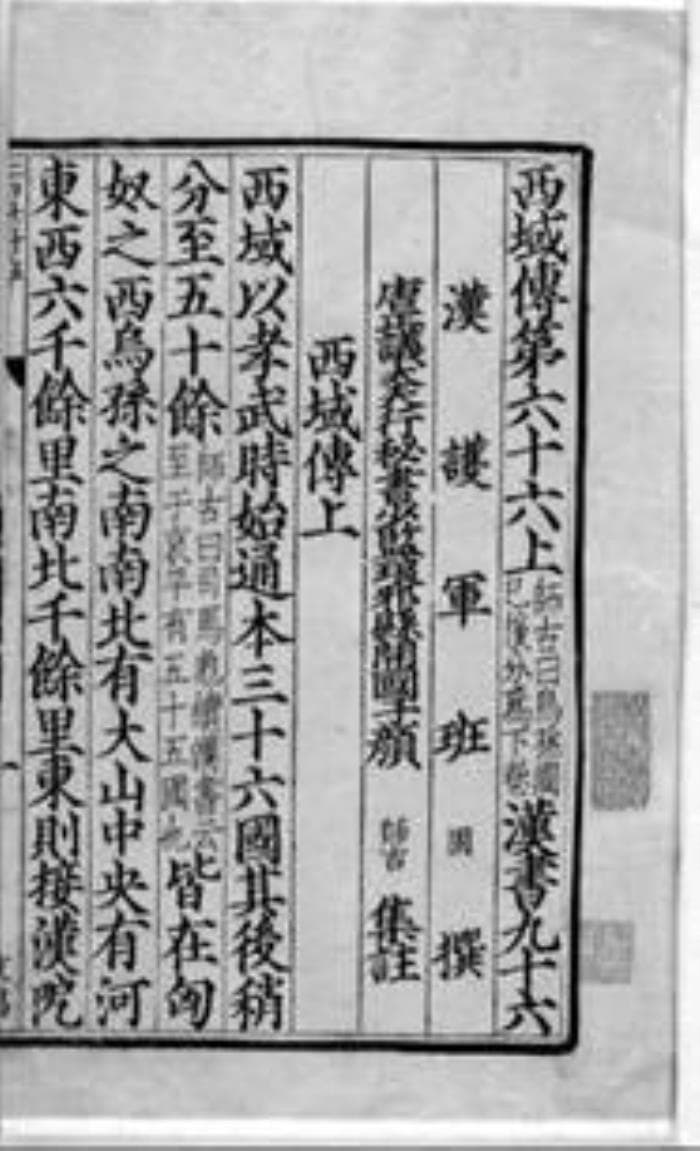 西域傳第六十六上 師古曰烏孫國已後分爲下卷 漢書九十六
漢護軍班固撰
唐議大行秘書少監琅邪縣開國子顏師古集註
西域傳上
西域以孝武時始通本三十六國其後稍
分至五十餘 師古曰司馬彪續漢書云至于哀平有五十五國也 皆在匈
奴之西烏孫之南南北有大山中央有河
東西六千餘里南北千餘里東則接漢阸